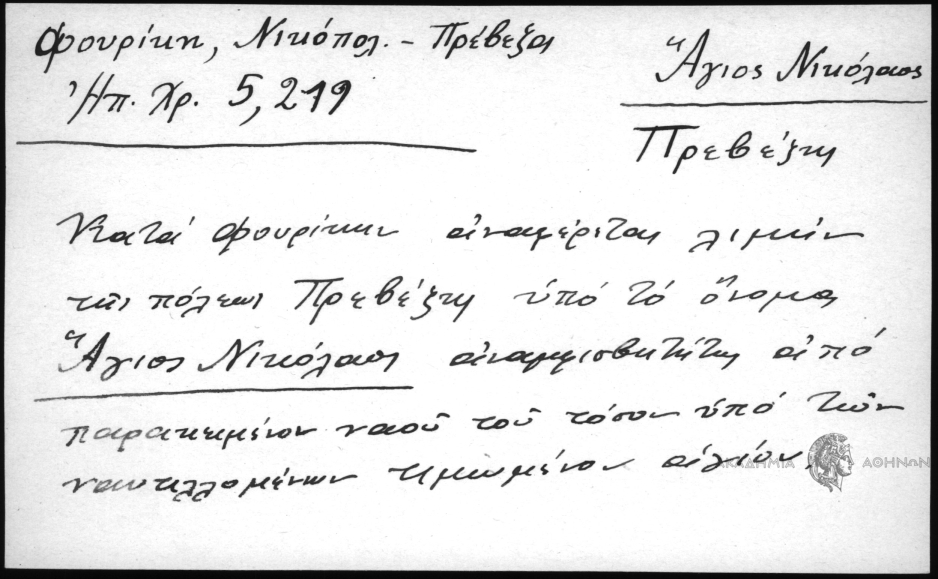 Φουρίκη, Νικόπολ. - Πρέβεζα
Ἠπ. Χρ. 5, 219
Ἅγιος Νικόλαος
Πρεβέζης
Κατά Φουρίκην ἀναφέρεται λιμήν
τῆς πόλεως Πρεβέζης ὑπό τό ὄνομα
Ἅγιος Νικόλαος ἀναμφισβητήτως ἀπό
παρακειμένου ναοῦ τοῦ τόσον ὑπό τῶν
ναυτιλλομένων τιμωμένου ἁγίου.
ΑΚΑΔΗΜΙΑ ΑΘΗΝΩΝ